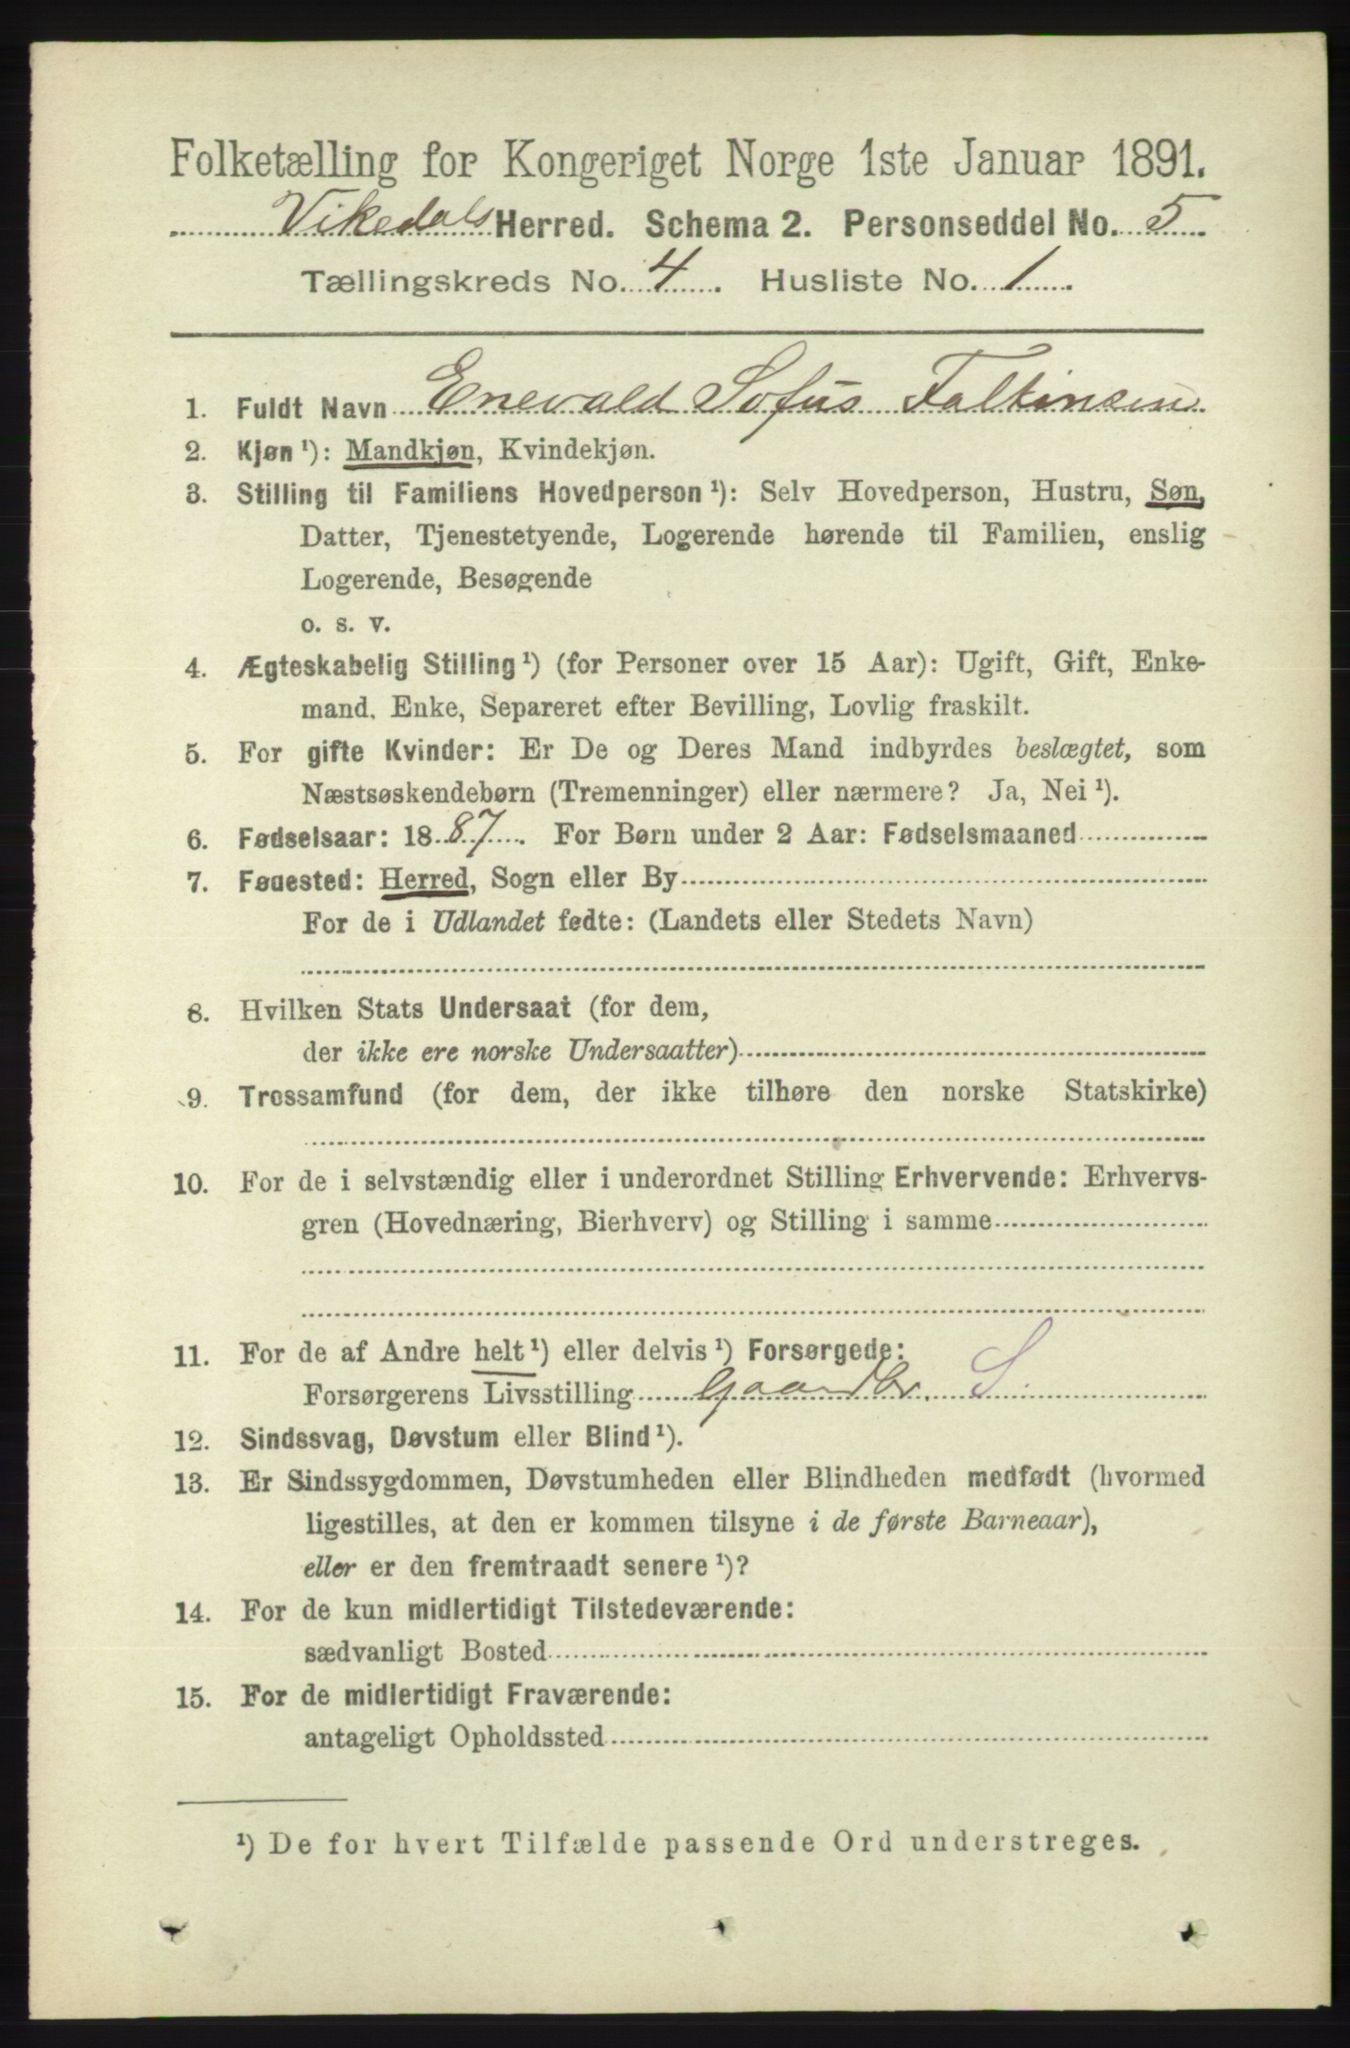 Folketælling for Kongeriget Norge 1ste Januar 1891.
Vikedals Herred. Schema 2. Personseddel No. 5
Tællingskreds No. 4. Husliste No. 1.
1. Fuldt Navn Enevald Sofus Falkinsen
2. Kjøn ¹): Mandkjøn, Kvindekjøn.
3. Stilling til Familiens Hovedperson ¹): Selv Hovedperson, Hustru, Søn,
Datter, Tjenestetyende, Logerende hørende til Familien, enslig
Logerende, Besøgende
o. s. v.
4. Ægteskabelig Stilling ¹) (for Personer over 15 Aar): Ugift, Gift, Enke-
mand, Enke, Separeret efter Bevilling, Lovlig fraskilt.
5. For gifte Kvinder: Er De og Deres Mand indbyrdes beslægtet, som
Næstsøskendebørn (Tremenninger) eller nærmere? Ja, Nei ¹).
6. Fødselsaar: 1887. For Børn under 2 Aar: Fødselsmaaned
7. Fødested: Herred, Sogn eller By
For de i Udlandet fødte: (Landets eller Stedets Navn)
8. Hvilken Stats Undersaat (for dem,
der ikke ere norske Undersaatter)
9. Trossamfund (for dem, der ikke tilhøre den norske Statskirke)
10. For de i selvstændig eller i underordnet Stilling Erhvervende: Erhvervs-
gren (Hovednæring, Bierhverv) og Stilling i samme
11. For de af Andre helt ¹) eller delvis ¹) Forsørgede:
Forsørgerens Livsstilling Gaardbr. S.
12. Sindssvag, Døvstum eller Blind ¹).
13. Er Sindssygdommen, Døvstumheden eller Blindheden medfødt (hvormed
ligestilles, at den er kommen tilsyne i de første Barneaar),
eller er den fremtraadt senere ¹)?
14. For de kun midlertidigt Tilstedeværende:
sædvanligt Bosted
15. For de midlertidigt Fraværende:
antageligt Opholdssted
¹) De for hvert Tilfælde passende Ord understreges.